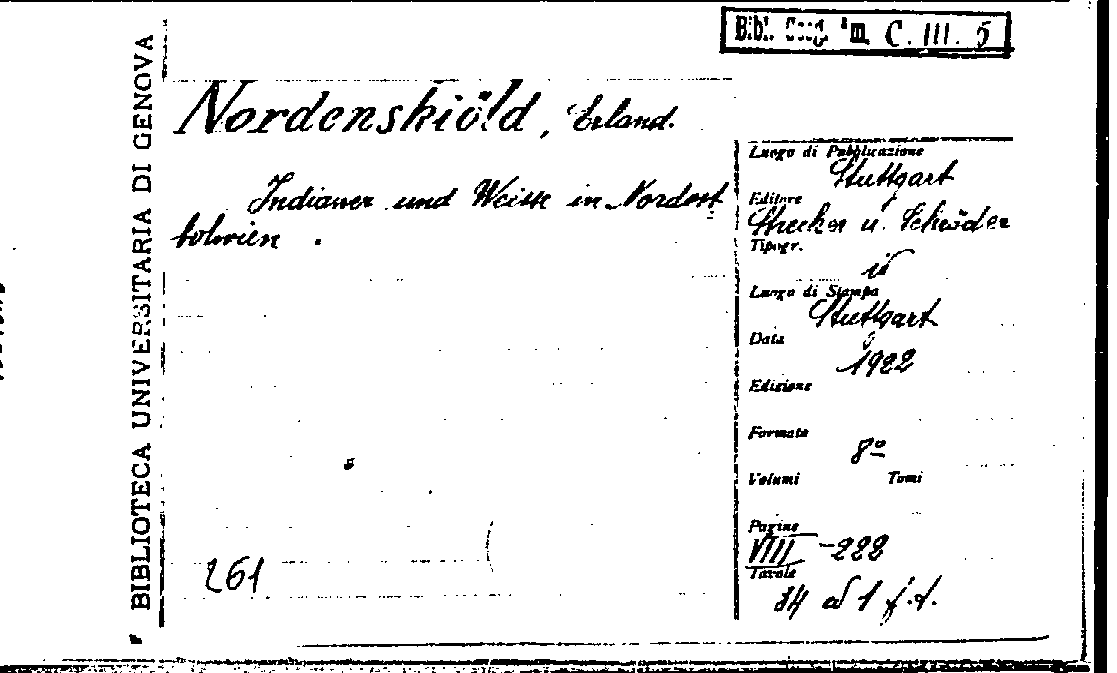 Bibl. Geog. C. III. 5
BIBLIOTECA UNIVERSITARIA DI GENOVA
Nordenskiöld, Erland.
Indianer und Weisse in Nordost
bolivien.
261
Luogo di Pubblicazione
Stuttgart
Editore
Strecker u. Schröder
Tipogr.
id
Luogo di Stampa
Stuttgart
Data
1922
Edizione
Formato
8º
Volumi Tomi
Pagine
VIII-222
Tavole
34 a 1 f.t.